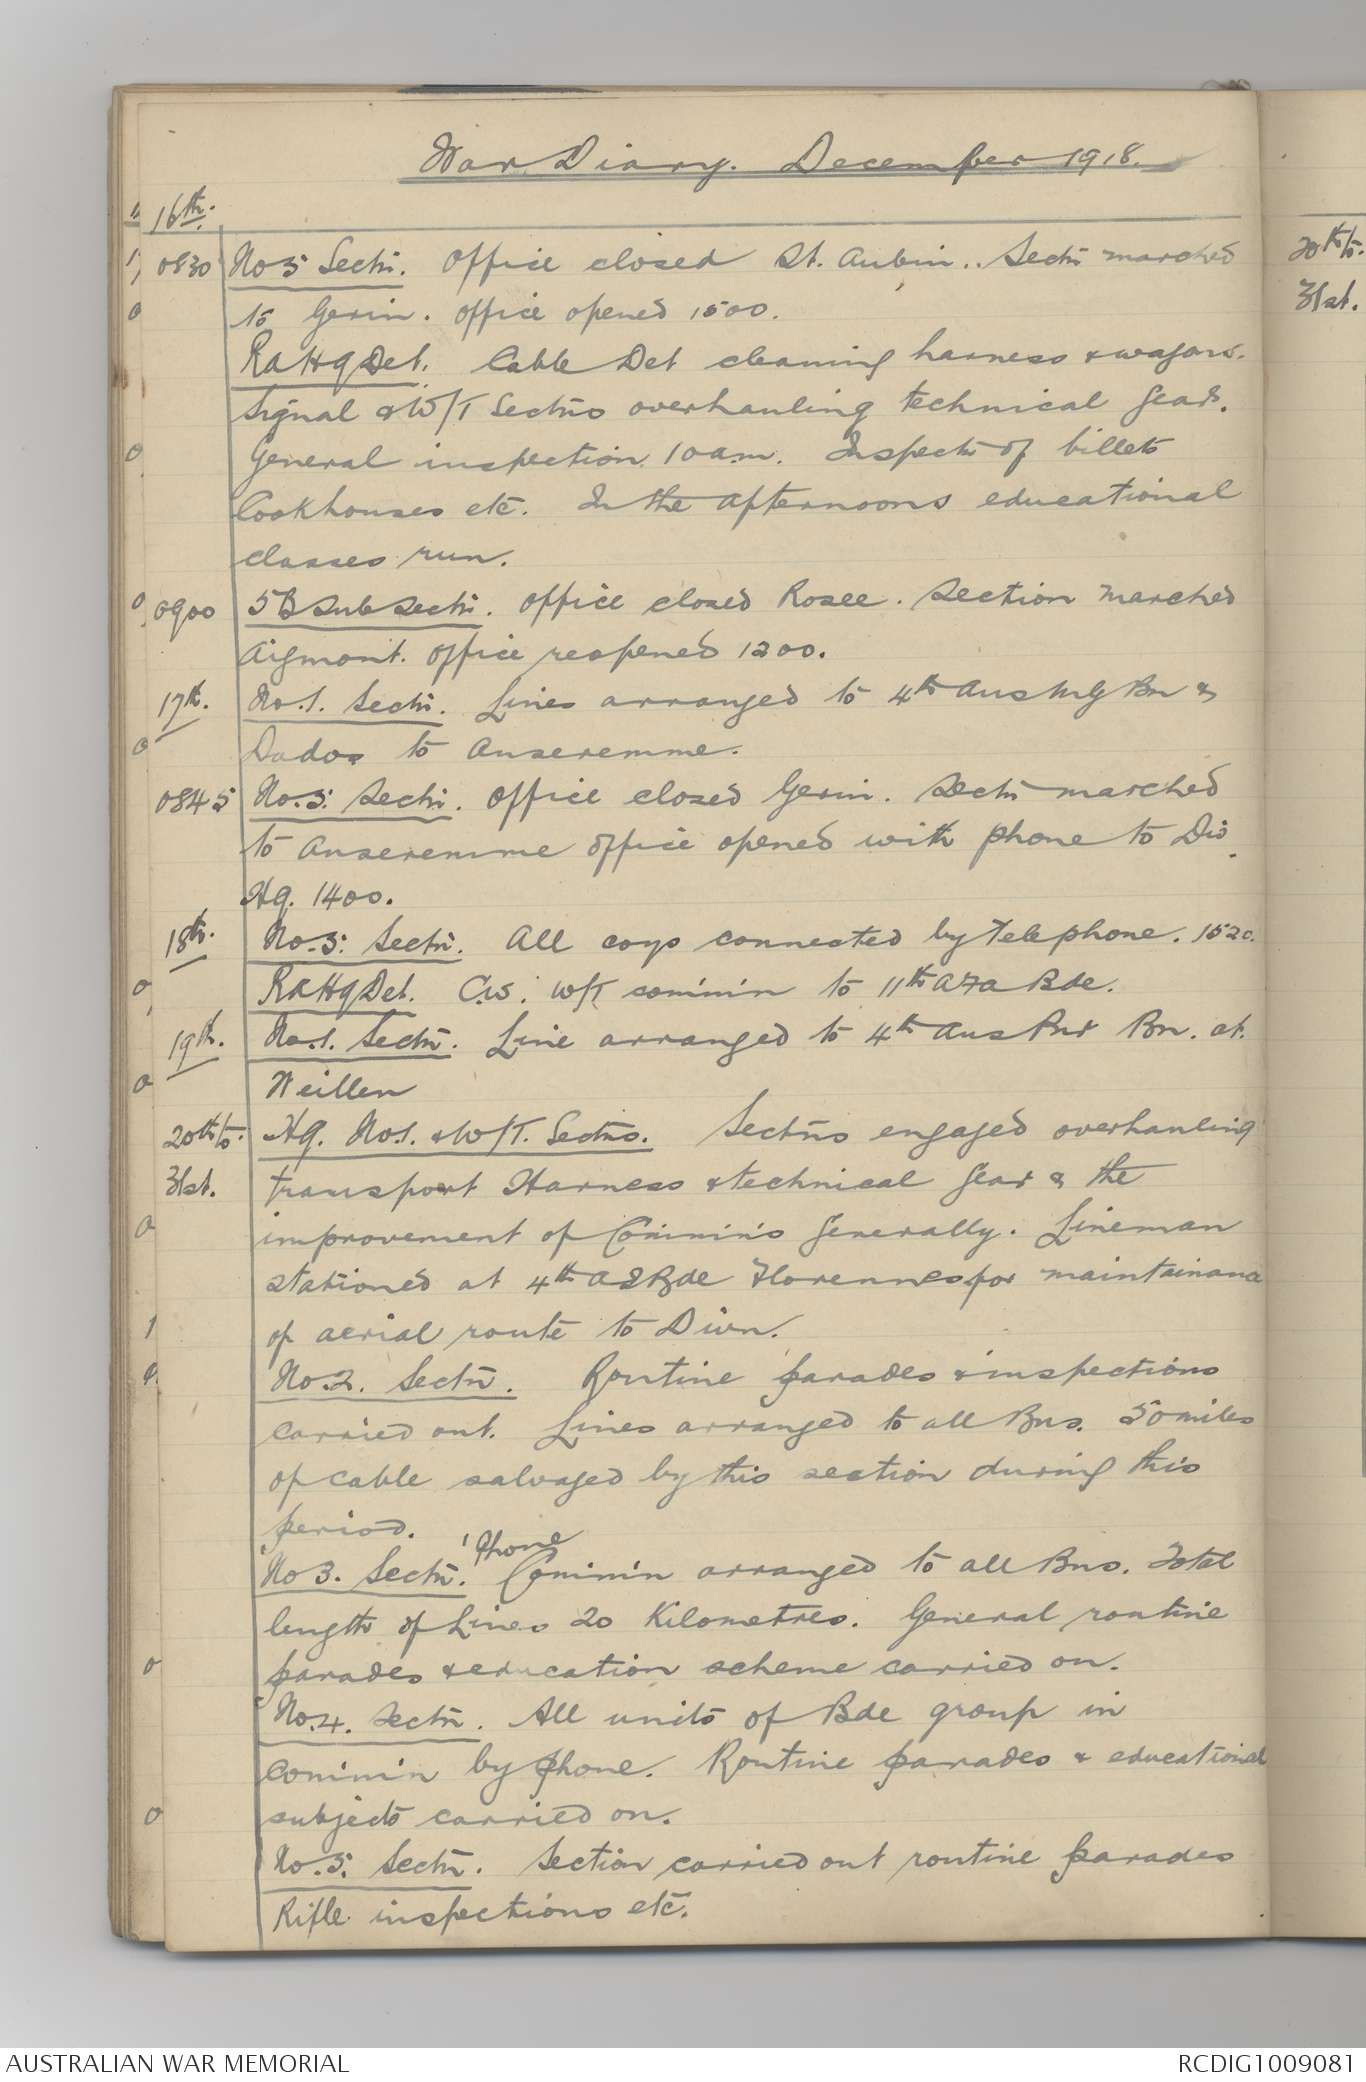 War Diary. December 1918.
16th.
0830 No 5 Sectn. Office closed St. Aubin.. Sectn marched
to Gerin. Office opened 1500.
RA Hq Det. Cable Det cleaning harness & wagons.
Signal & W/T Sectns overhauling technical gear.
General inspection 10 a.m. Inspectn of billets
Cookhouses etc. In the afternoons educational
classes run.
0900 5B Sub Sectn. Office closed Rosee. Section marched
Aigmont. Office reopened 1200.
17th. No.1. Sectn. Lines arranged to 4th Aus M G Bn &
Dados to Anseremme.
0845 No.5. Sectn. Office closed Gerin. Sectn marched
to Anseremme office opened with phone to Div
Hq. 1400.
18th. No.5. Sectn. All coys connected by telephone. 1520.
RA Hq Det. C.W. W/T commn to 11th A F A Bde.
19th. No.1. Sectn. Line arranged to 4th Aus Pnr Bn. at.
Weillen
20th to. Hq. No.1. & W/T. Sectns. Sectns engaged overhauling
31st. transport Harness & technical gear & the
improvement of Commns generally. Lineman
stationed at 4th A I Bde Florennes for maintainance
of aerial route to Divn.
No.2. Sectn. Routine parades & inspections
carried out. Lines arranged to all Bns. 50 miles
of cable salvaged by this section during this
period.
No 3. Sectn. 'Phone Commn arranged to all Bns. Total
length of Lines 20 Kilometres. General routine
parades & education scheme carried on.
No.4. Sectn. All units of Bde group in
commn by phone. Routine parades & educational
subjects carried on.
No.5. Sectn. Section carried out routine parades
Rifle inspections etc.
20th to.
31st.
AUSTRALIAN WAR MEMORIAL
RCDIG1009081